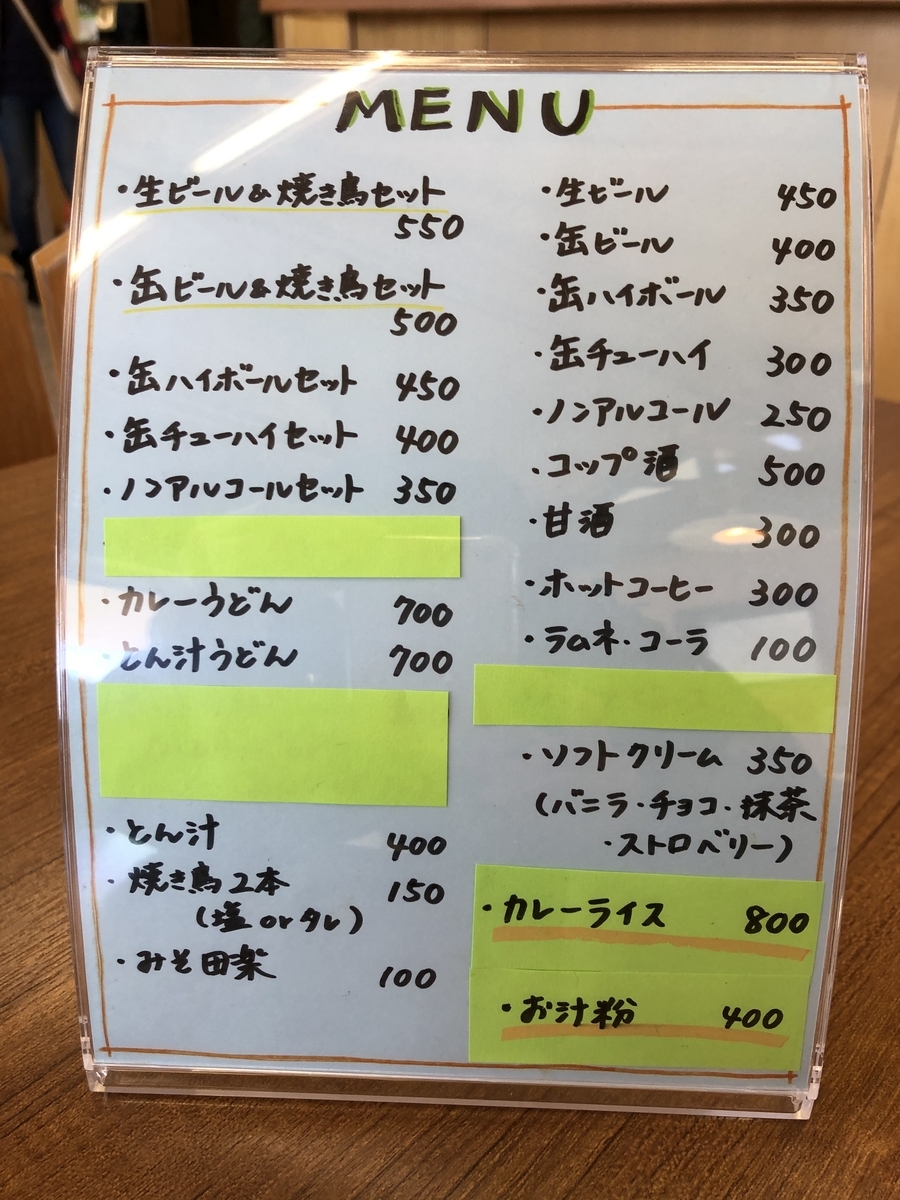 MENU
・生ビール&焼き鳥セット
550
・缶ビール&焼き鳥セット
500
・缶ハイボールセット 450
・缶チューハイセット 400
・ノンアルコールセット 350
・カレーうどん 700
・とん汁うどん 700
・とん汁 400
・焼き鳥2本 150
(塩orタレ)
・みそ田楽 100
・生ビール 450
・缶ビール 400
・缶ハイボール 350
・缶チューハイ 300
・ノンアルコール 250
・コップ酒 500
・甘酒 300
・ホットコーヒー 300
・ラムネ・コーラ 100
・ソフトクリーム 350
(バニラ・チョコ・抹茶
・ストロベリー)
・カレーライス 800
・お汁粉 400